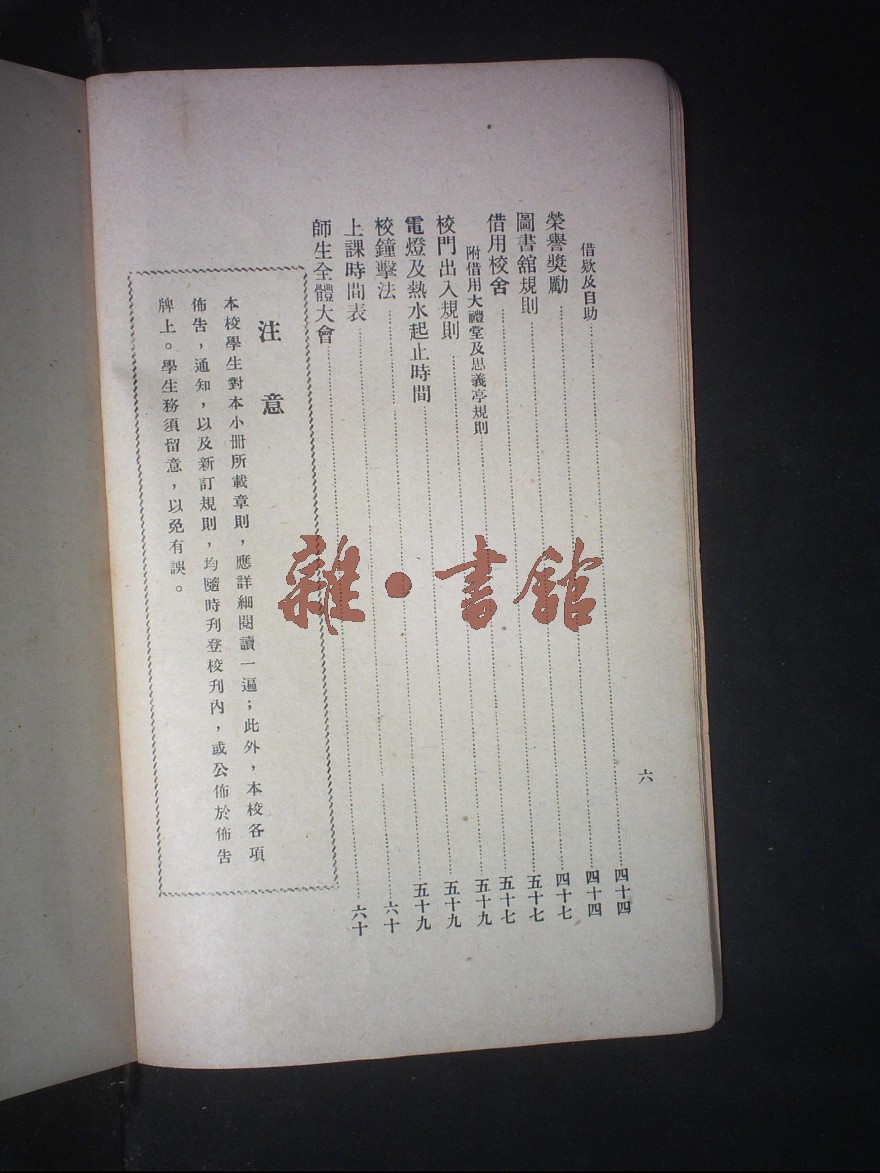 六
借欵及自助……四十四
榮譽獎勵……四十四
圖書舘規則……四十七
借用校舍……五十七
附借用大禮堂及思義亭規則……五十七
校門出入規則……五十九
電燈及熱水起止時間……五十九
校鐘擊法……五十九
上課時間表……六十
師生全體大會……六十
注意
本校學生對本小冊所載章則，應詳細閱讀一遍；此外，本校各項
佈告，通知，以及新訂規則，均隨時刋登校刋內，或公佈於佈告
牌上。學生務須留意，以免有誤。
雜·書館